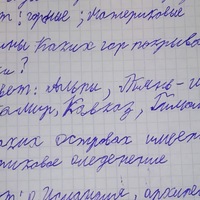 т: горные; материковые
ины каких гор покрыва
и?
вет: Альпы, Тянь-Ш
амир, Кавказ, Гимал
аких островах имеет
иковое оледенение
т: о. Исландия, архипе